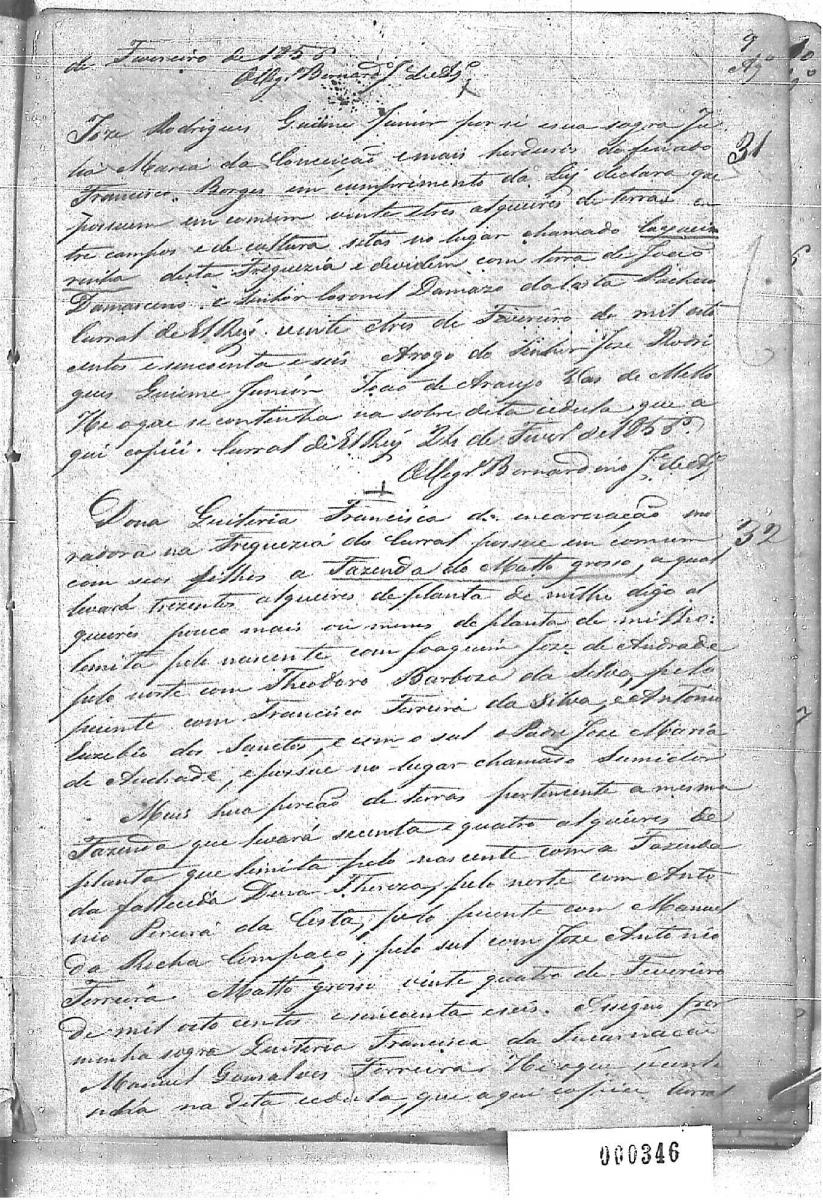 de Fevereiro de 1856
O Vigr.o Bernardo J.e de Aq.o
9
Aq.o
Joze Rodrigues Guieme Junior por si e sua sogra Ju
lia Maria da Conceição e mais herdeiros do finado
31
Francisco Borges em cumprimento da Ley declara que
possuem em comum vinte e tres alqueires de terras en
tre campos e de cultura setas no lugar chamado Caxuei
rinha desta Freguezia e devidem com terra de João
Damasceno e Senhor Coronel Damazo da Costa Pacheco
Curral de El Rey vinte e tres de Fevereiro de mil oito
centos e sincoenta e seis Arogo do Senhor Joze Rodri
gues Guieme Junior João de Araujo Vas de Mello
He o que se continha na sobre dita cedula que a
qui copiei. Curral de El Rey 24 de Fever.o de 1856.
O Vigr.o Bernardino J.e de Aq.o
Dona Quiteria Francisca da encarnação mo
radora na Freguezia do Curral possue em comum
32
com seos filhos a Fazenda do Matto grosso, a qual
levará trezentos alqueires de planta de milho digo al
queires pouco mais ou menos de planta de milho:
lemita pelo nascente com Joaquim Joze de Andrade
pelo norte com Theodoro Barboza da Silva, pelo
puente com Francisco Ferreira da Silva, e Antonio
Euzebio dos Sanctos, e com o sul o Padre Joze Maria
de Andrade, e possue no lugar chamado Sumidor
Mais hua porção de terras pertencente a mesma
Fazenda que levará secenta e quatro alqueires de
planta que limita pelo nascente com a Fazenda
da fallecida Dona Thereza, pelo norte com Anto
nio Pereira da Costa, pelo puente com Manuel
da Rocha Compaco; pelo sul com Joze Antonio
Ferreira Matto grosso vinte quatro de Fevereiro
de mil oito centos e sincoenta e seis. Assigno por
minha sogra Quiteria Francisca da Incarnação
Manuel Gonsalves Ferreira. He o que se conti
nha na dita cedula, que aqui copiei Curral
000346